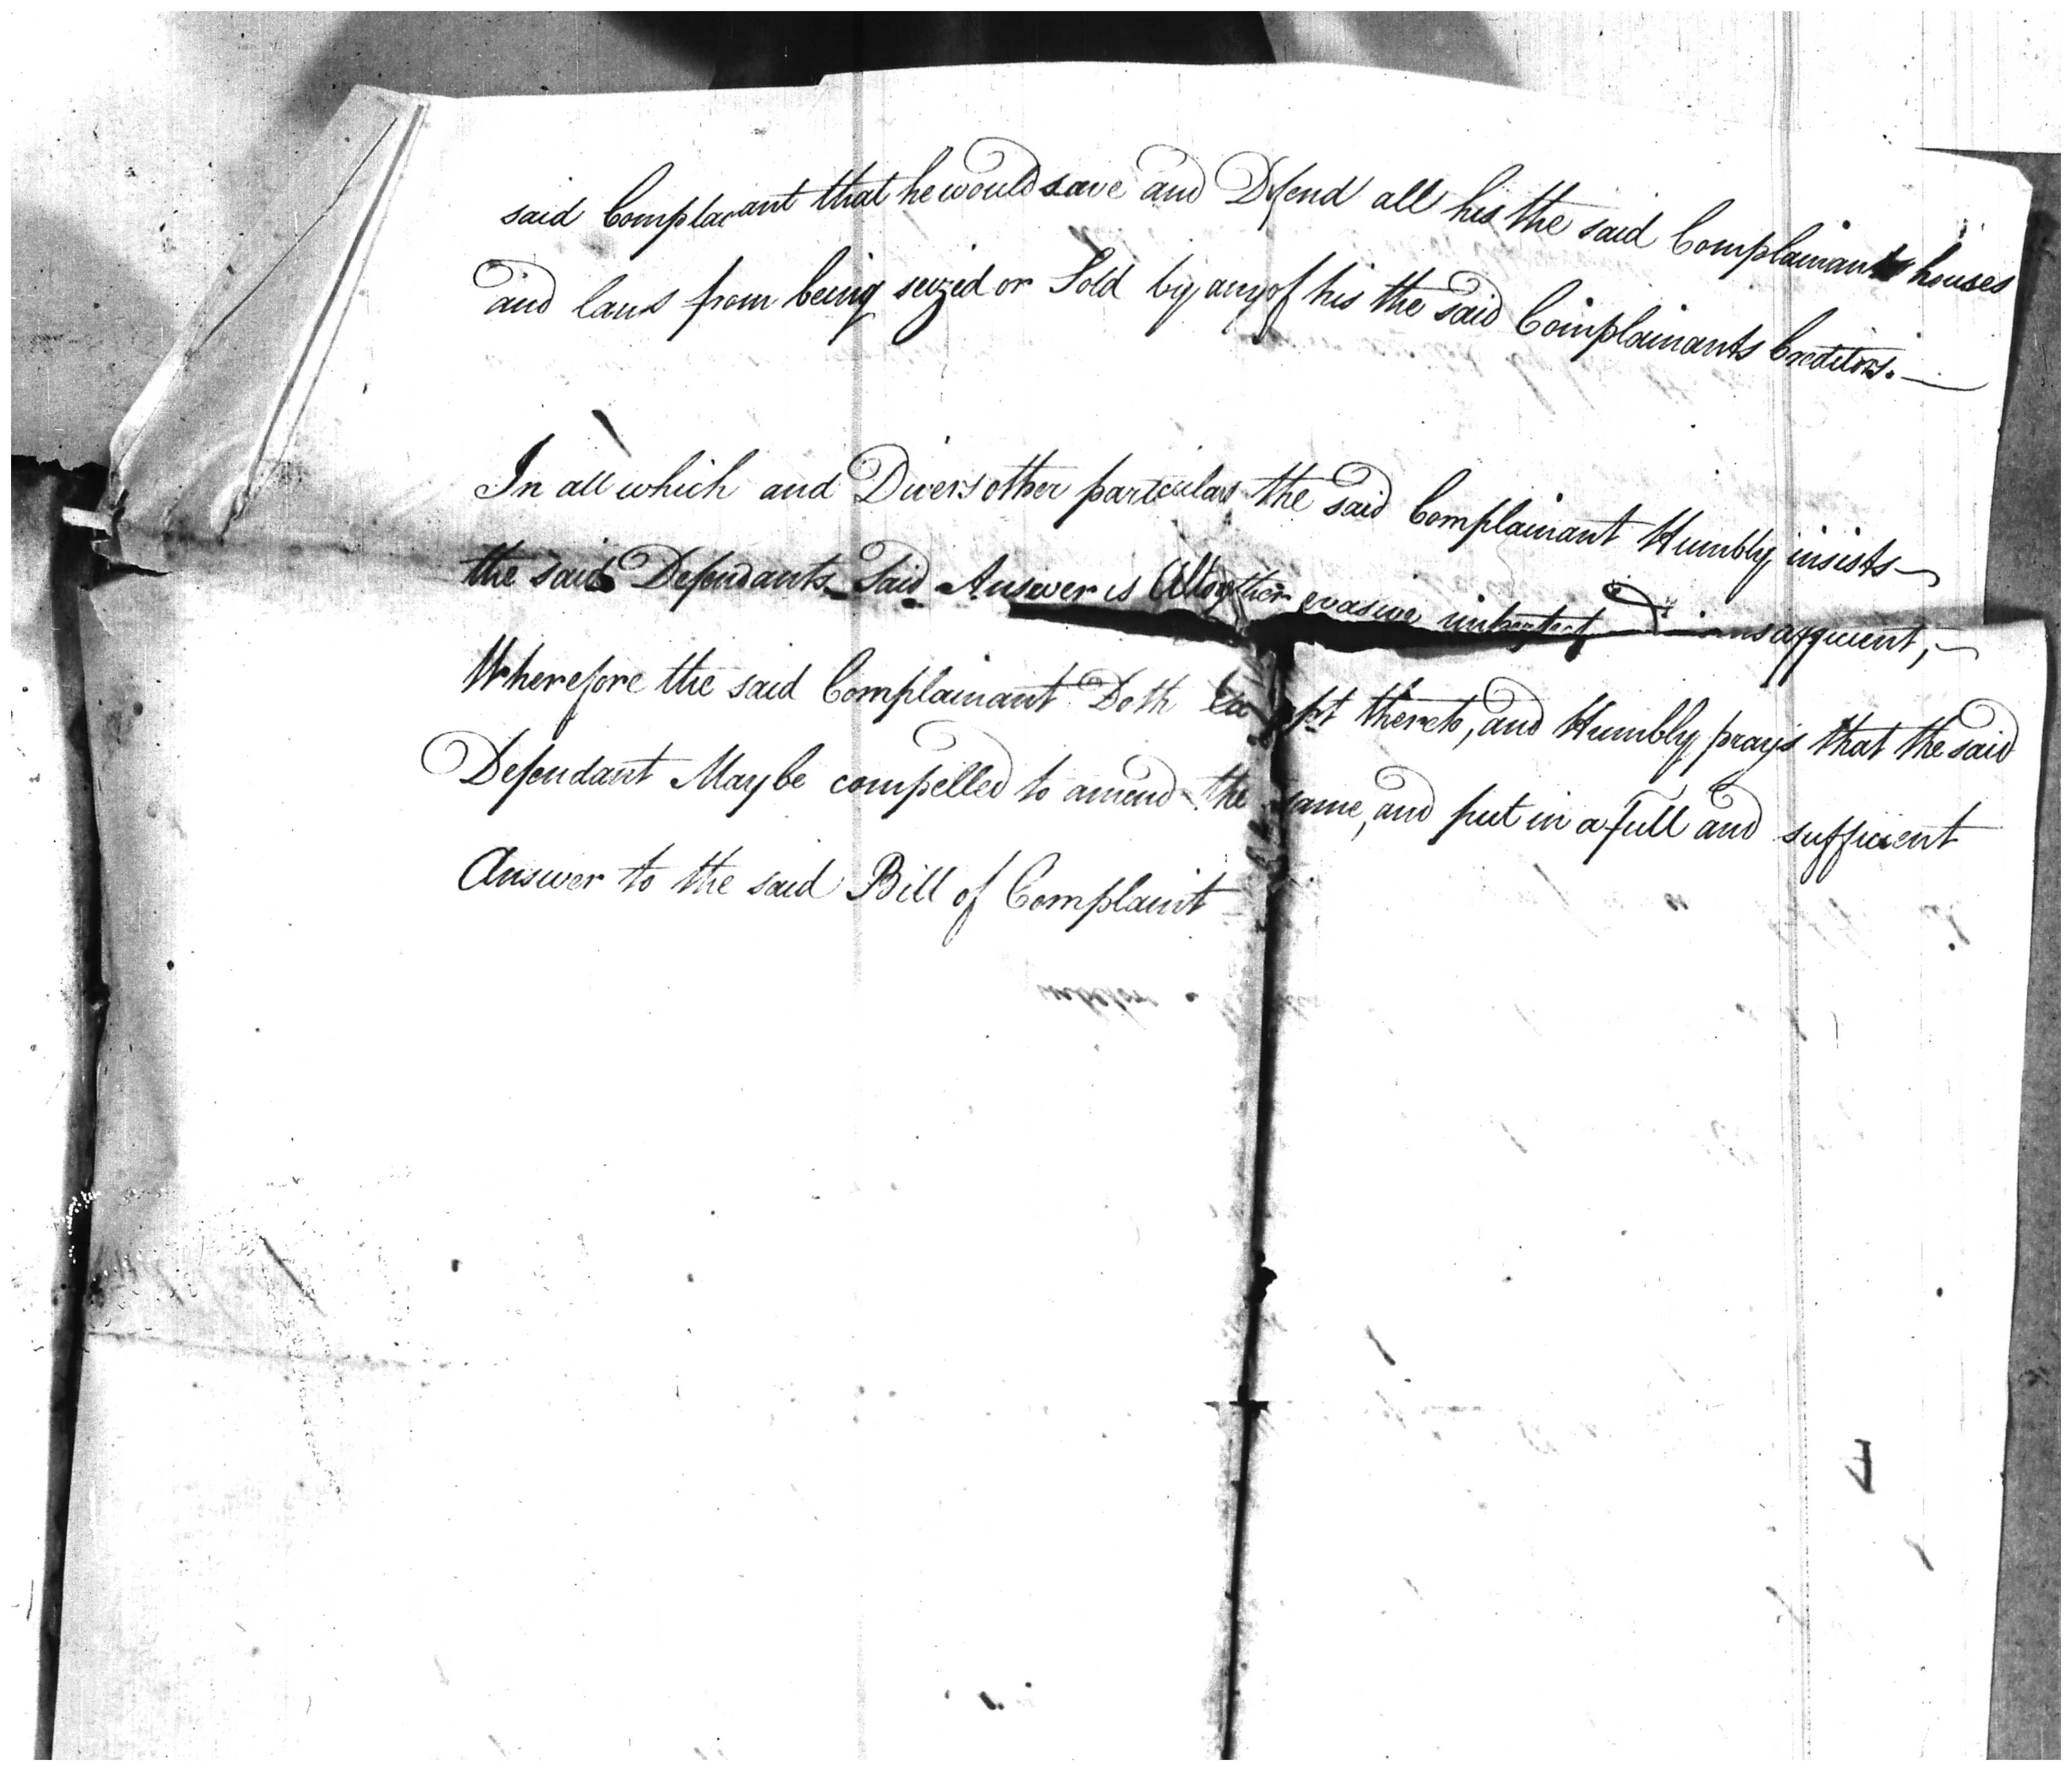 said Complaiant that he would save and Defend all his the said Complainants houses
and lans from being seized or Sold by any of his the said Complainants Creditors.—
In all which and Divers other particulars the said Complainant Humbly insists—
the said Defendants Said Answer is Altogether evasive imperfect insufficient,—
Wherefore the said Complainant Doth Except thereto, and Humbly prays that the said
Defendant May be compelled to amend the same, and put in a full and sufficient
Answer to the said Bill of Complaint